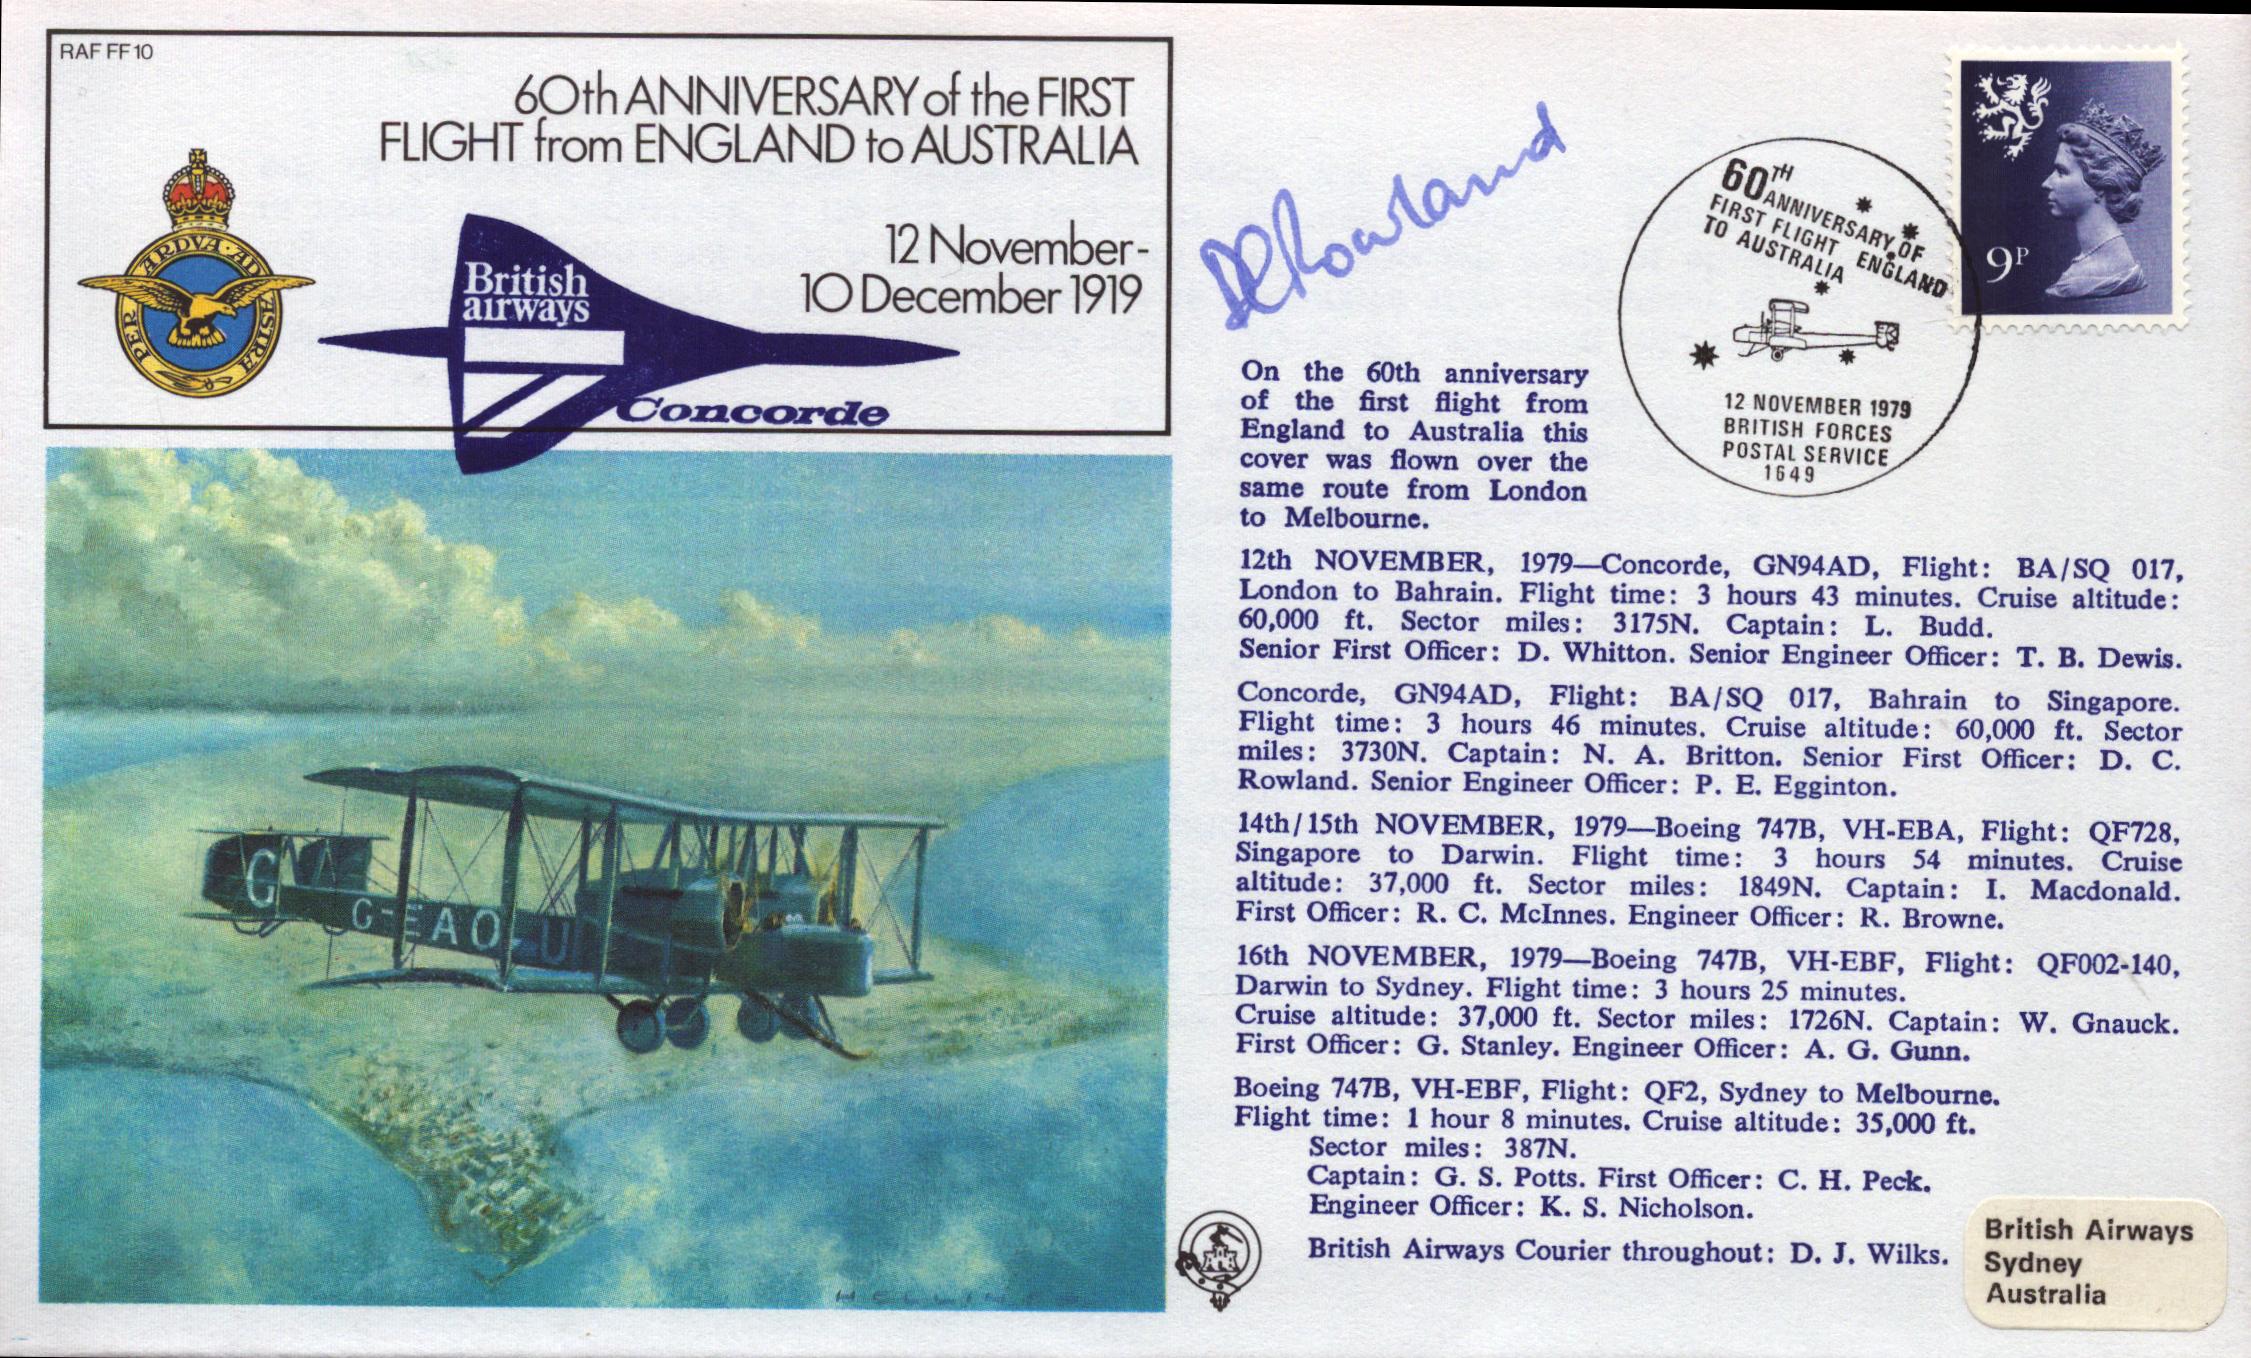 RAF FF 10
60th ANNIVERSARY of the FIRST
FLIGHT from ENGLAND to AUSTRALIA
12 November-
10 December 1919
PER ARDVA · AD ASTRA
British
airways
Concorde
G
G-EAOU
D C Rowland
60TH
ANNIVERSARY OF
FIRST FLIGHT ENGLAND
TO AUSTRALIA
12 NOVEMBER 1979
BRITISH FORCES
POSTAL SERVICE
1649
9P
On the 60th anniversary
of the first flight from
England to Australia this
cover was flown over the
same route from London
to Melbourne.
12th NOVEMBER, 1979—Concorde, GN94AD, Flight: BA/SQ 017,
London to Bahrain. Flight time: 3 hours 43 minutes. Cruise altitude:
60,000 ft. Sector miles: 3175N. Captain: L. Budd.
Senior First Officer: D. Whitton. Senior Engineer Officer: T. B. Dewis.
Concorde, GN94AD, Flight: BA/SQ 017, Bahrain to Singapore.
Flight time: 3 hours 46 minutes. Cruise altitude: 60,000 ft. Sector
miles: 3730N. Captain: N. A. Britton. Senior First Officer: D. C.
Rowland. Senior Engineer Officer: P. E. Egginton.
14th/15th NOVEMBER, 1979—Boeing 747B, VH-EBA, Flight: QF728,
Singapore to Darwin. Flight time: 3 hours 54 minutes. Cruise
altitude: 37,000 ft. Sector miles: 1849N. Captain: I. Macdonald.
First Officer: R. C. McInnes. Engineer Officer: R. Browne.
16th NOVEMBER, 1979—Boeing 747B, VH-EBF, Flight: QF002-140,
Darwin to Sydney. Flight time: 3 hours 25 minutes.
Cruise altitude: 37,000 ft. Sector miles: 1726N. Captain: W. Gnauck.
First Officer: G. Stanley. Engineer Officer: A. G. Gunn.
Boeing 747B, VH-EBF, Flight: QF2, Sydney to Melbourne.
Flight time: 1 hour 8 minutes. Cruise altitude: 35,000 ft.
Sector miles: 387N.
Captain: G. S. Potts. First Officer: C. H. Peck.
Engineer Officer: K. S. Nicholson.
British Airways Courier throughout: D. J. Wilks.
British Airways
Sydney
Australia